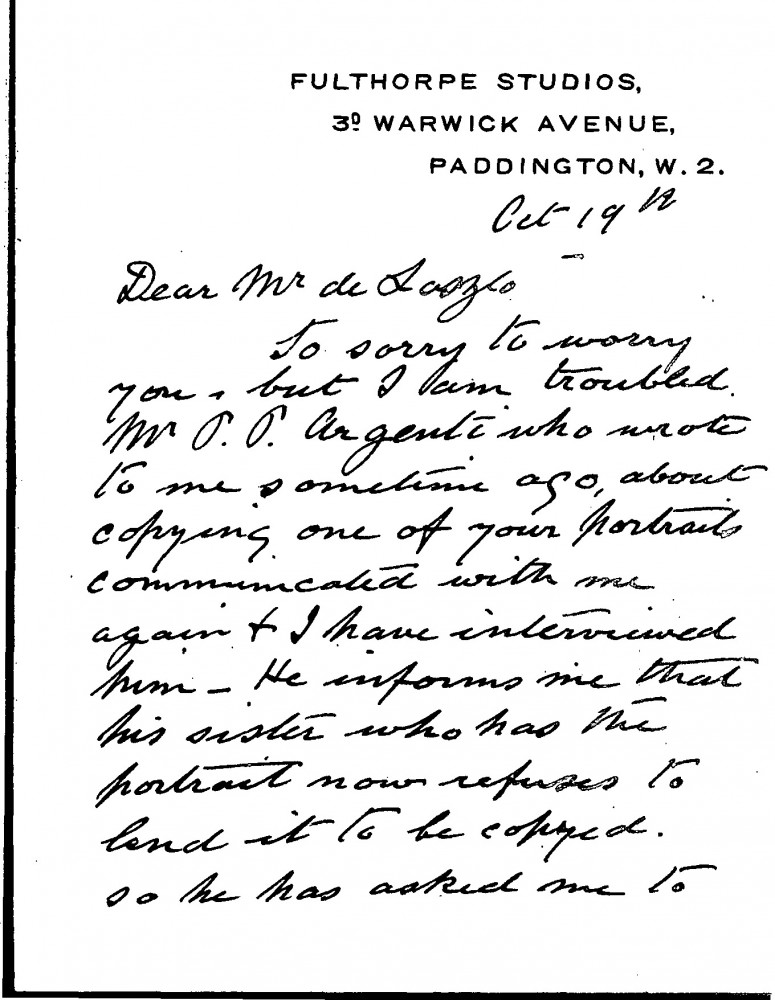 FULTHORPE STUDIOS,
3D WARWICK AVENUE,
PADDINGTON, W. 2.
Oct 19th
Dear Mr de Laszlo
So sorry to worry
you, but I am troubled.
Mr P. P. Argenti who wrote
to me sometime ago, about
copying one of your portraits
communicated with me
again + I have interviewed
him - He informs me that
his sister who has the
portrait now refuses to
lend it to be copyed.
so he has asked me to